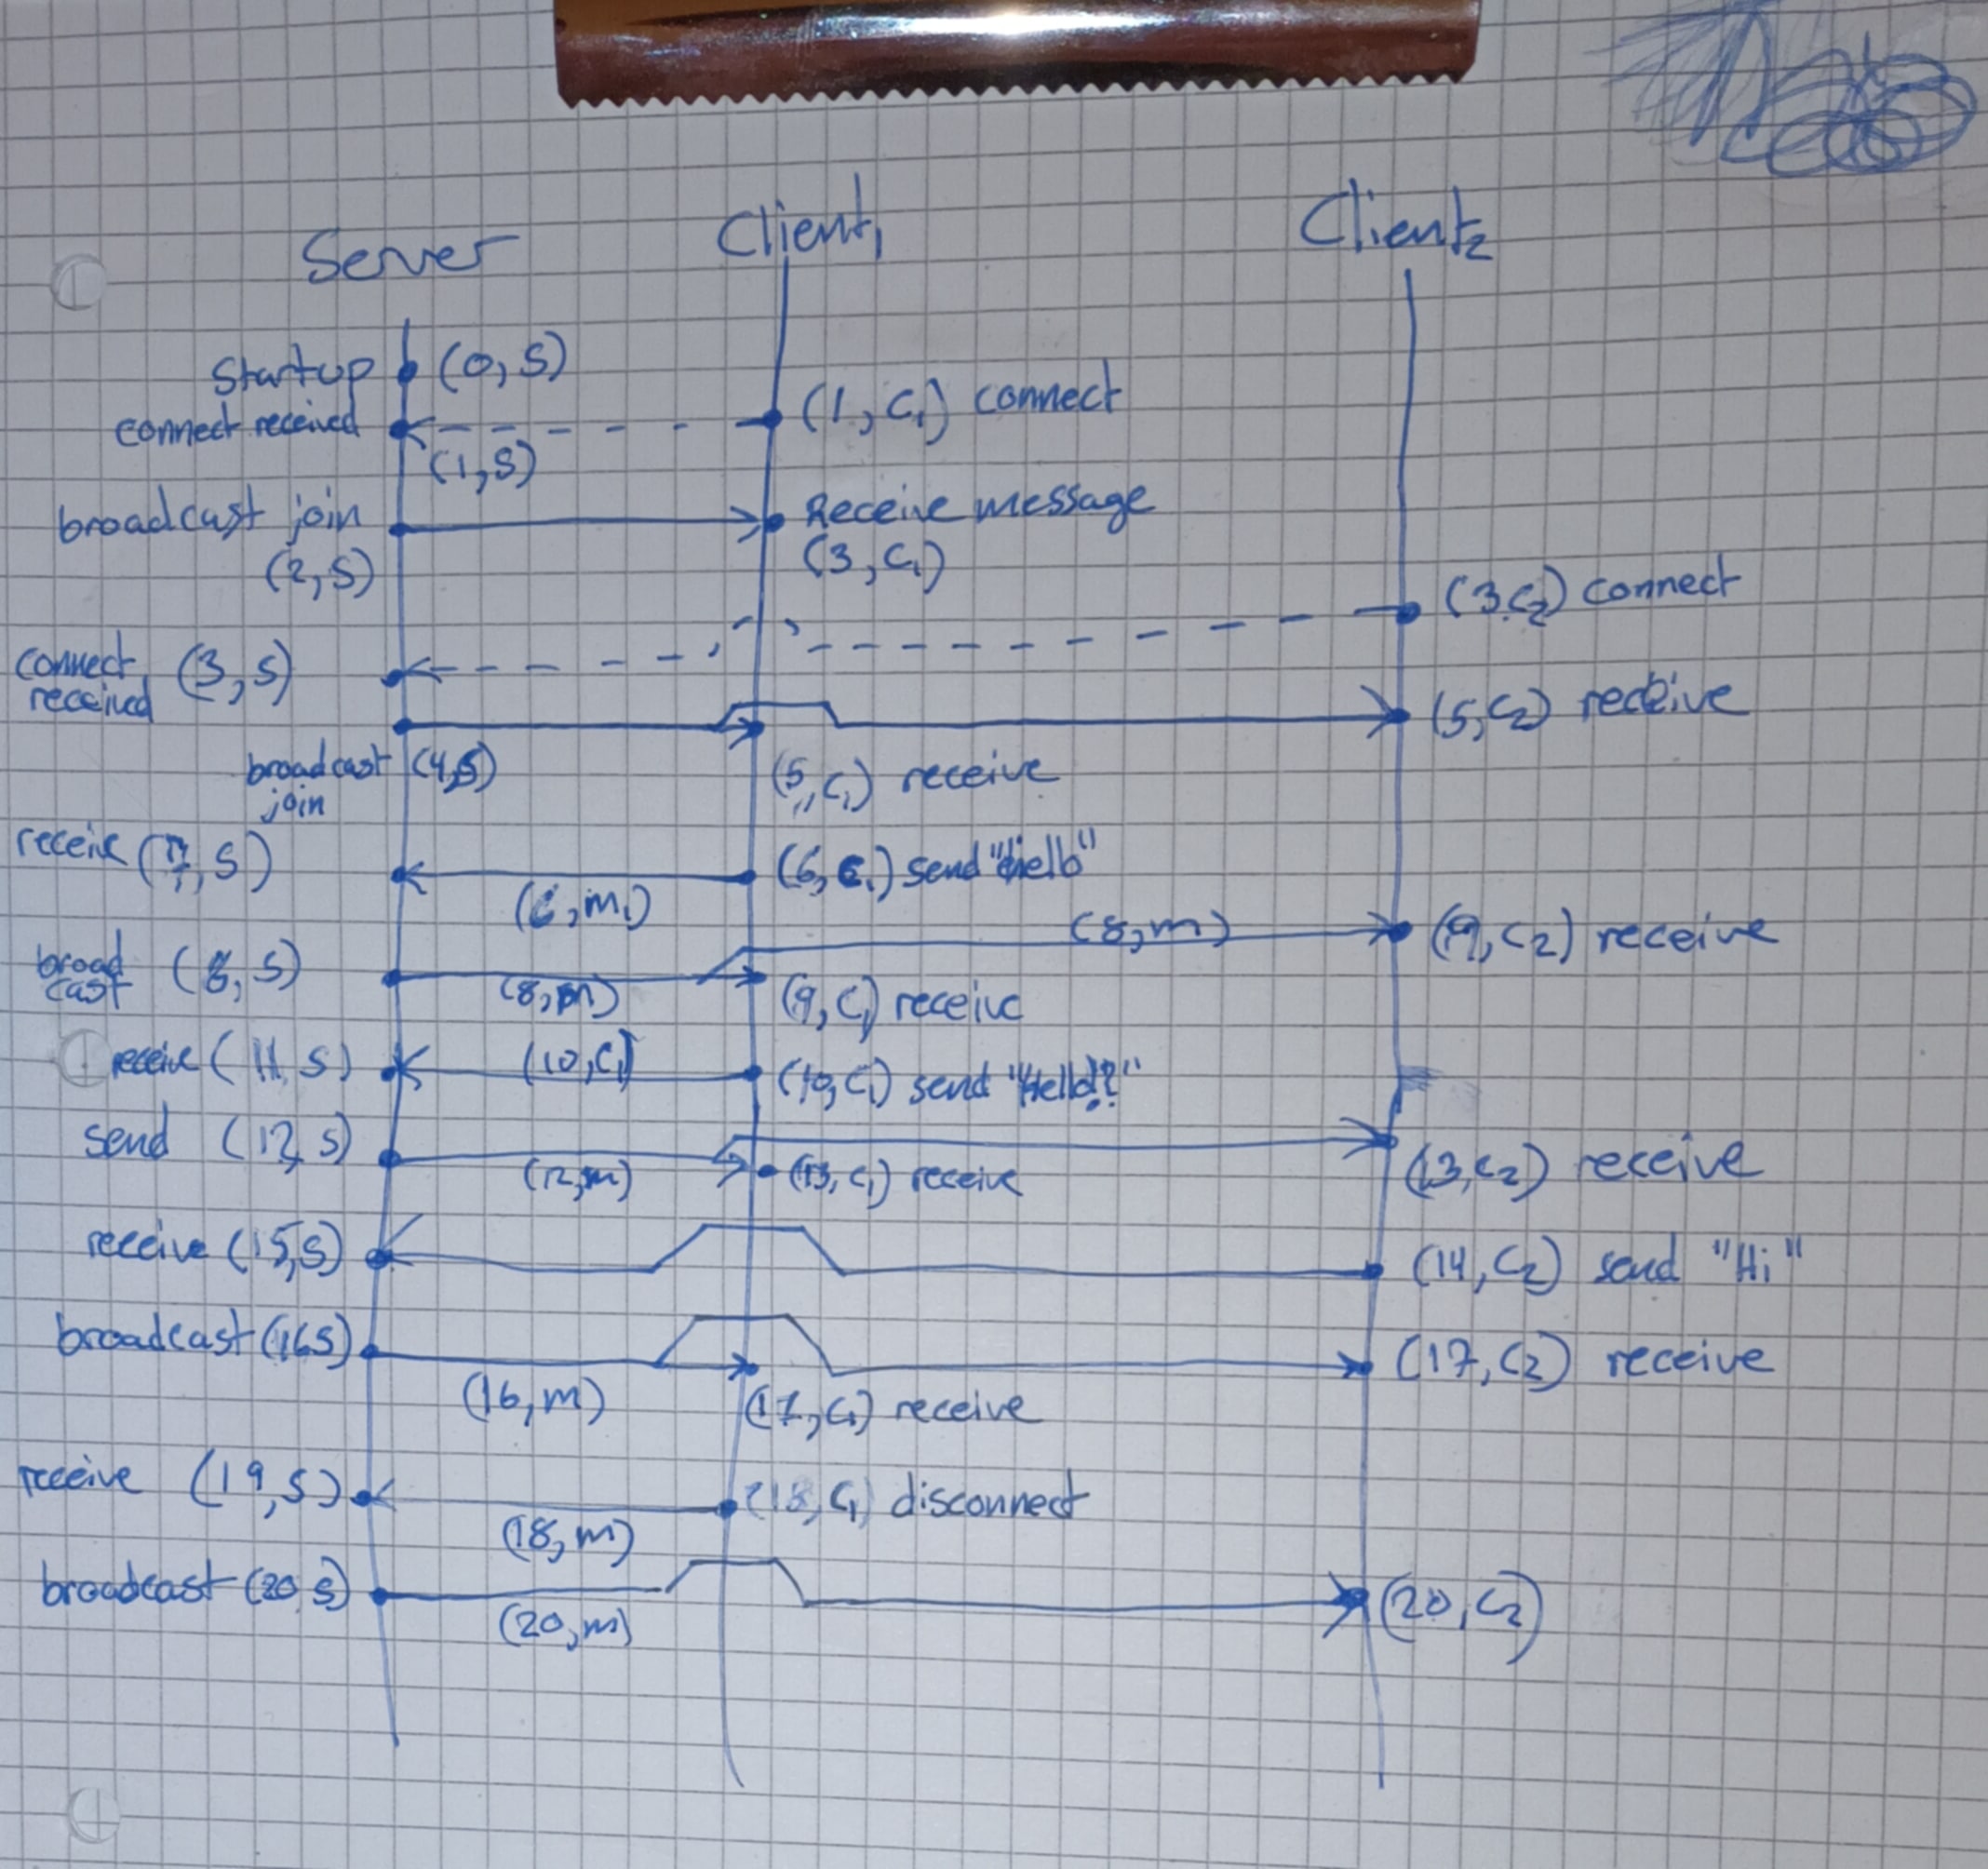 Server Client₁ Client₂
Startup (0, S)
(1, C₁) connect
connect received
(1, S)
broadcast join Receive message
(2, S) (3, C₁)
(3, C₂) connect
connect received (3, S)
(5, C₂) receive
broadcast join (4, S) (5, C₁) receive
receive (7, S) (6, C₁) send "Hello"
(6, m₁)
(8, m) (9, C₂) receive
broad cast (8, S) (8, m) (9, C₁) receive
receive (11, S) (10, C₁) (10, C₁) send "Hello!?"
send (12, S)
(12, m) (13, C₁) receive (13, C₂) receive
receive (15, S) (14, C₂) send "Hi"
broadcast (16 S) (17, C₂) receive
(16, m) (17, C₁) receive
receive (19, S) (18, C₁) disconnect
(18, m)
broadcast (20, S) (20, C₂)
(20, m)